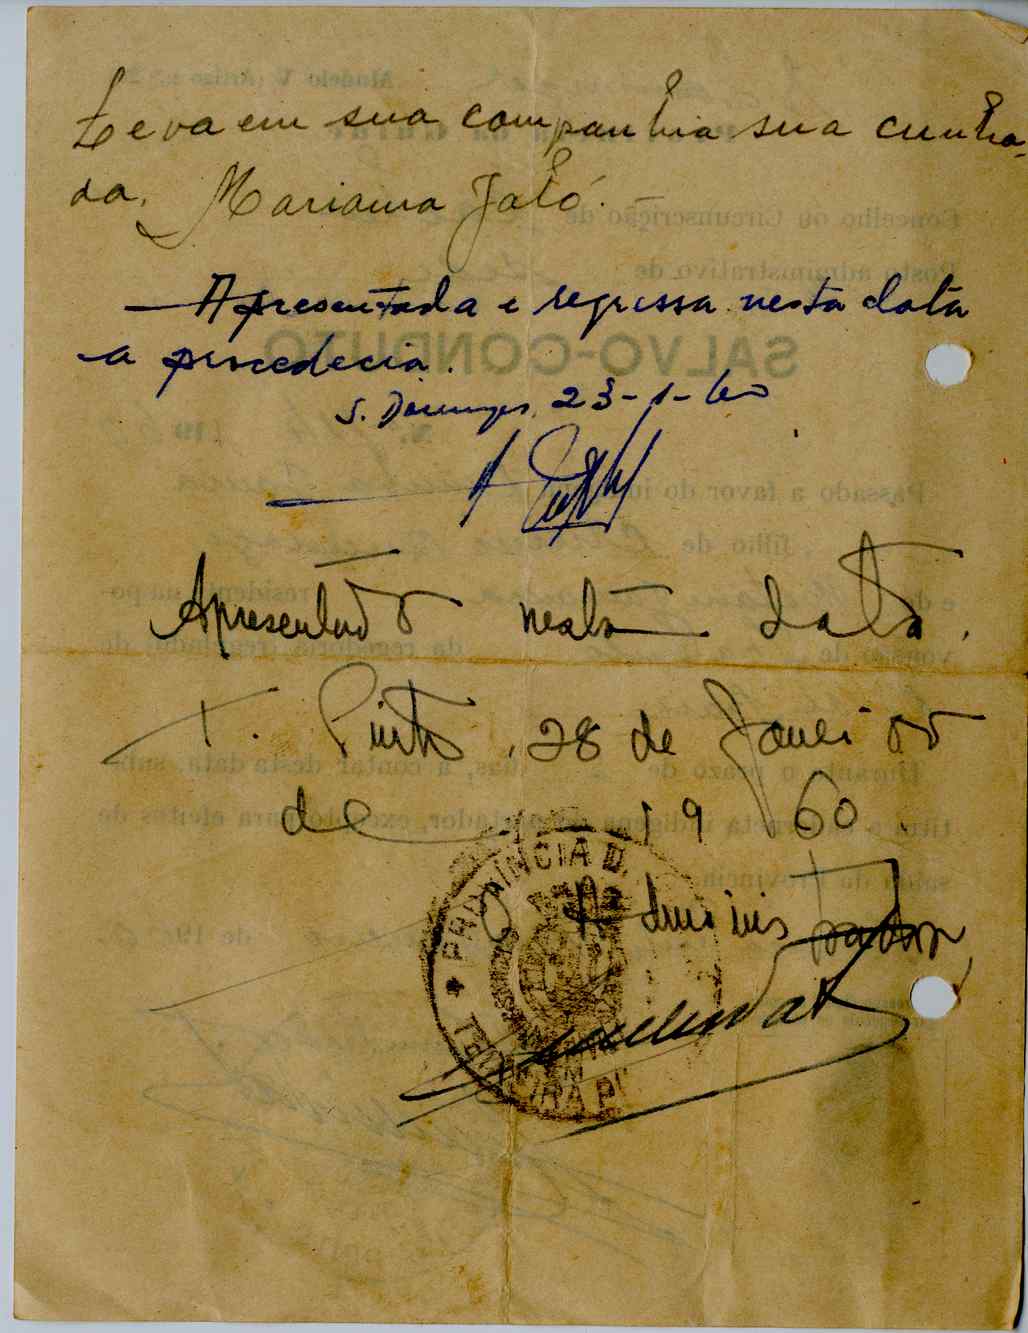 Leva em sua companhia sua cunha-
da, Mariama Jaló. —
— Apresentada e regressa nesta data
a procedecia.
S. Domingos, 23-1-60
Apresentado nesta data.
T. Pinto, 28 de Janeiro
de 1960
O Administrador
PROVINCIA D
TEIXEIRA PI